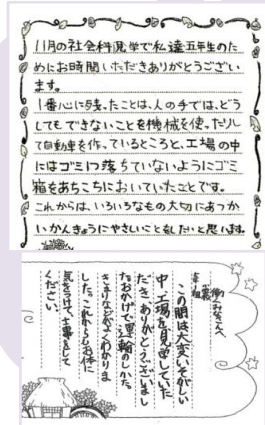 11月の社会科見学で私達五年生のた
めにお時間いただきありがとうござい
ます。
1番心に残ったことは、人の手では、どう
してもできないことを機械を使ったりし
て自動車を作っているところと、工場の中
にはゴミ1つ落ちていないようにゴミ
箱をあちこちにおいていたことです。
これからは、いろいろなもの大切にあつか
いかんきょうにやさしいことをしたいと思います。
みなさんへ
この間は大変いそがしい
中、工場を見学していた
だきありがとうございまし
た。おかげで、
などがよくわかりま
した。これからもお体に
気をつけて、お仕事をして
ください。